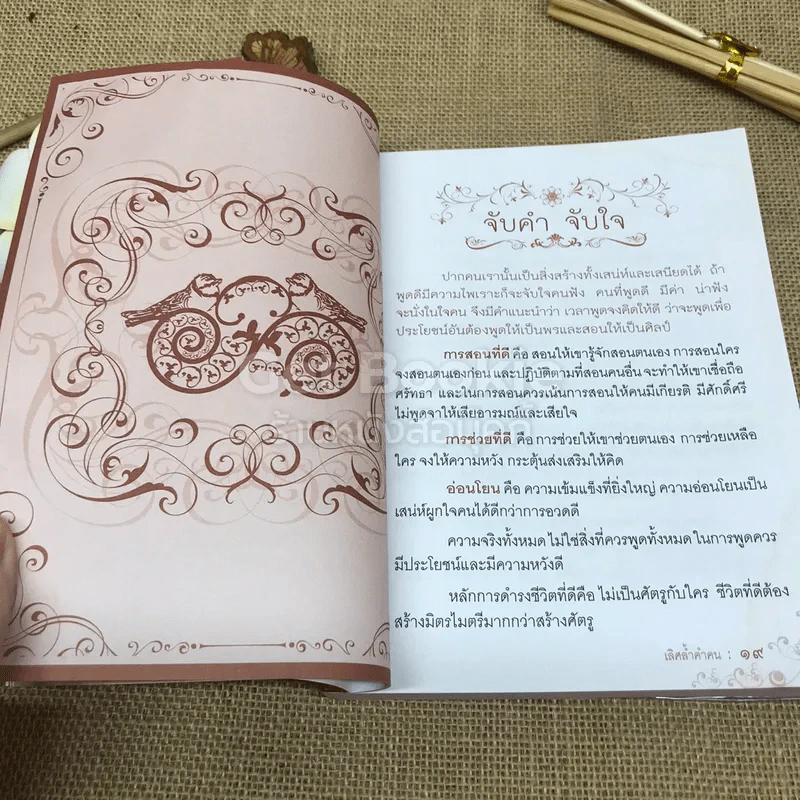 จับคำ จับใจ
ปากคนเรานั้นเป็นสิ่งสร้างทั้งเสน่ห์และเสนียดได้ ถ้า
พูดดีมีความไพเราะก็จะจับใจคนฟัง คนที่พูดดี มีค่า น่าฟัง
จะนั่งในใจคน จึงมีคำแนะนำว่า เวลาพูดจงคิดให้ดี ว่าจะพูดเพื่อ
ประโยชน์อันต้องพูดให้เป็นพรและสอนให้เป็นศิลป์
การสอนที่ดี คือ สอนให้เขารู้จักสอนตนเอง การสอนใคร
จงสอนตนเองก่อน และปฏิบัติตามที่สอนคนอื่น จะทำให้เขาเชื่อถือ
ศรัทธา และในการสอนควรเน้นการสอนให้คนมีเกียรติ มีศักดิ์ศรี
ไม่พูดจาให้เสียอารมณ์และเสียใจ
การช่วยที่ดี คือ การช่วยให้เขาช่วยตนเอง การช่วยเหลือ
ใคร จงให้ความหวัง กระตุ้นส่งเสริมให้คิด
อ่อนโยน คือ ความเข้มแข็งที่ยิ่งใหญ่ ความอ่อนโยนเป็น
เสน่ห์ผูกใจคนได้ดีกว่าการอวดดี
ความจริงทั้งหมด ไม่ใช่สิ่งที่ควรพูดทั้งหมด ในการพูดควร
มีประโยชน์และมีความหวังดี
หลักการดำรงชีวิตที่ดีคือ ไม่เป็นศัตรูกับใคร ชีวิตที่ดีต้อง
สร้างมิตรไมตรีมากกว่าสร้างศัตรู
เลิศล้ำคำคน : ๑๙